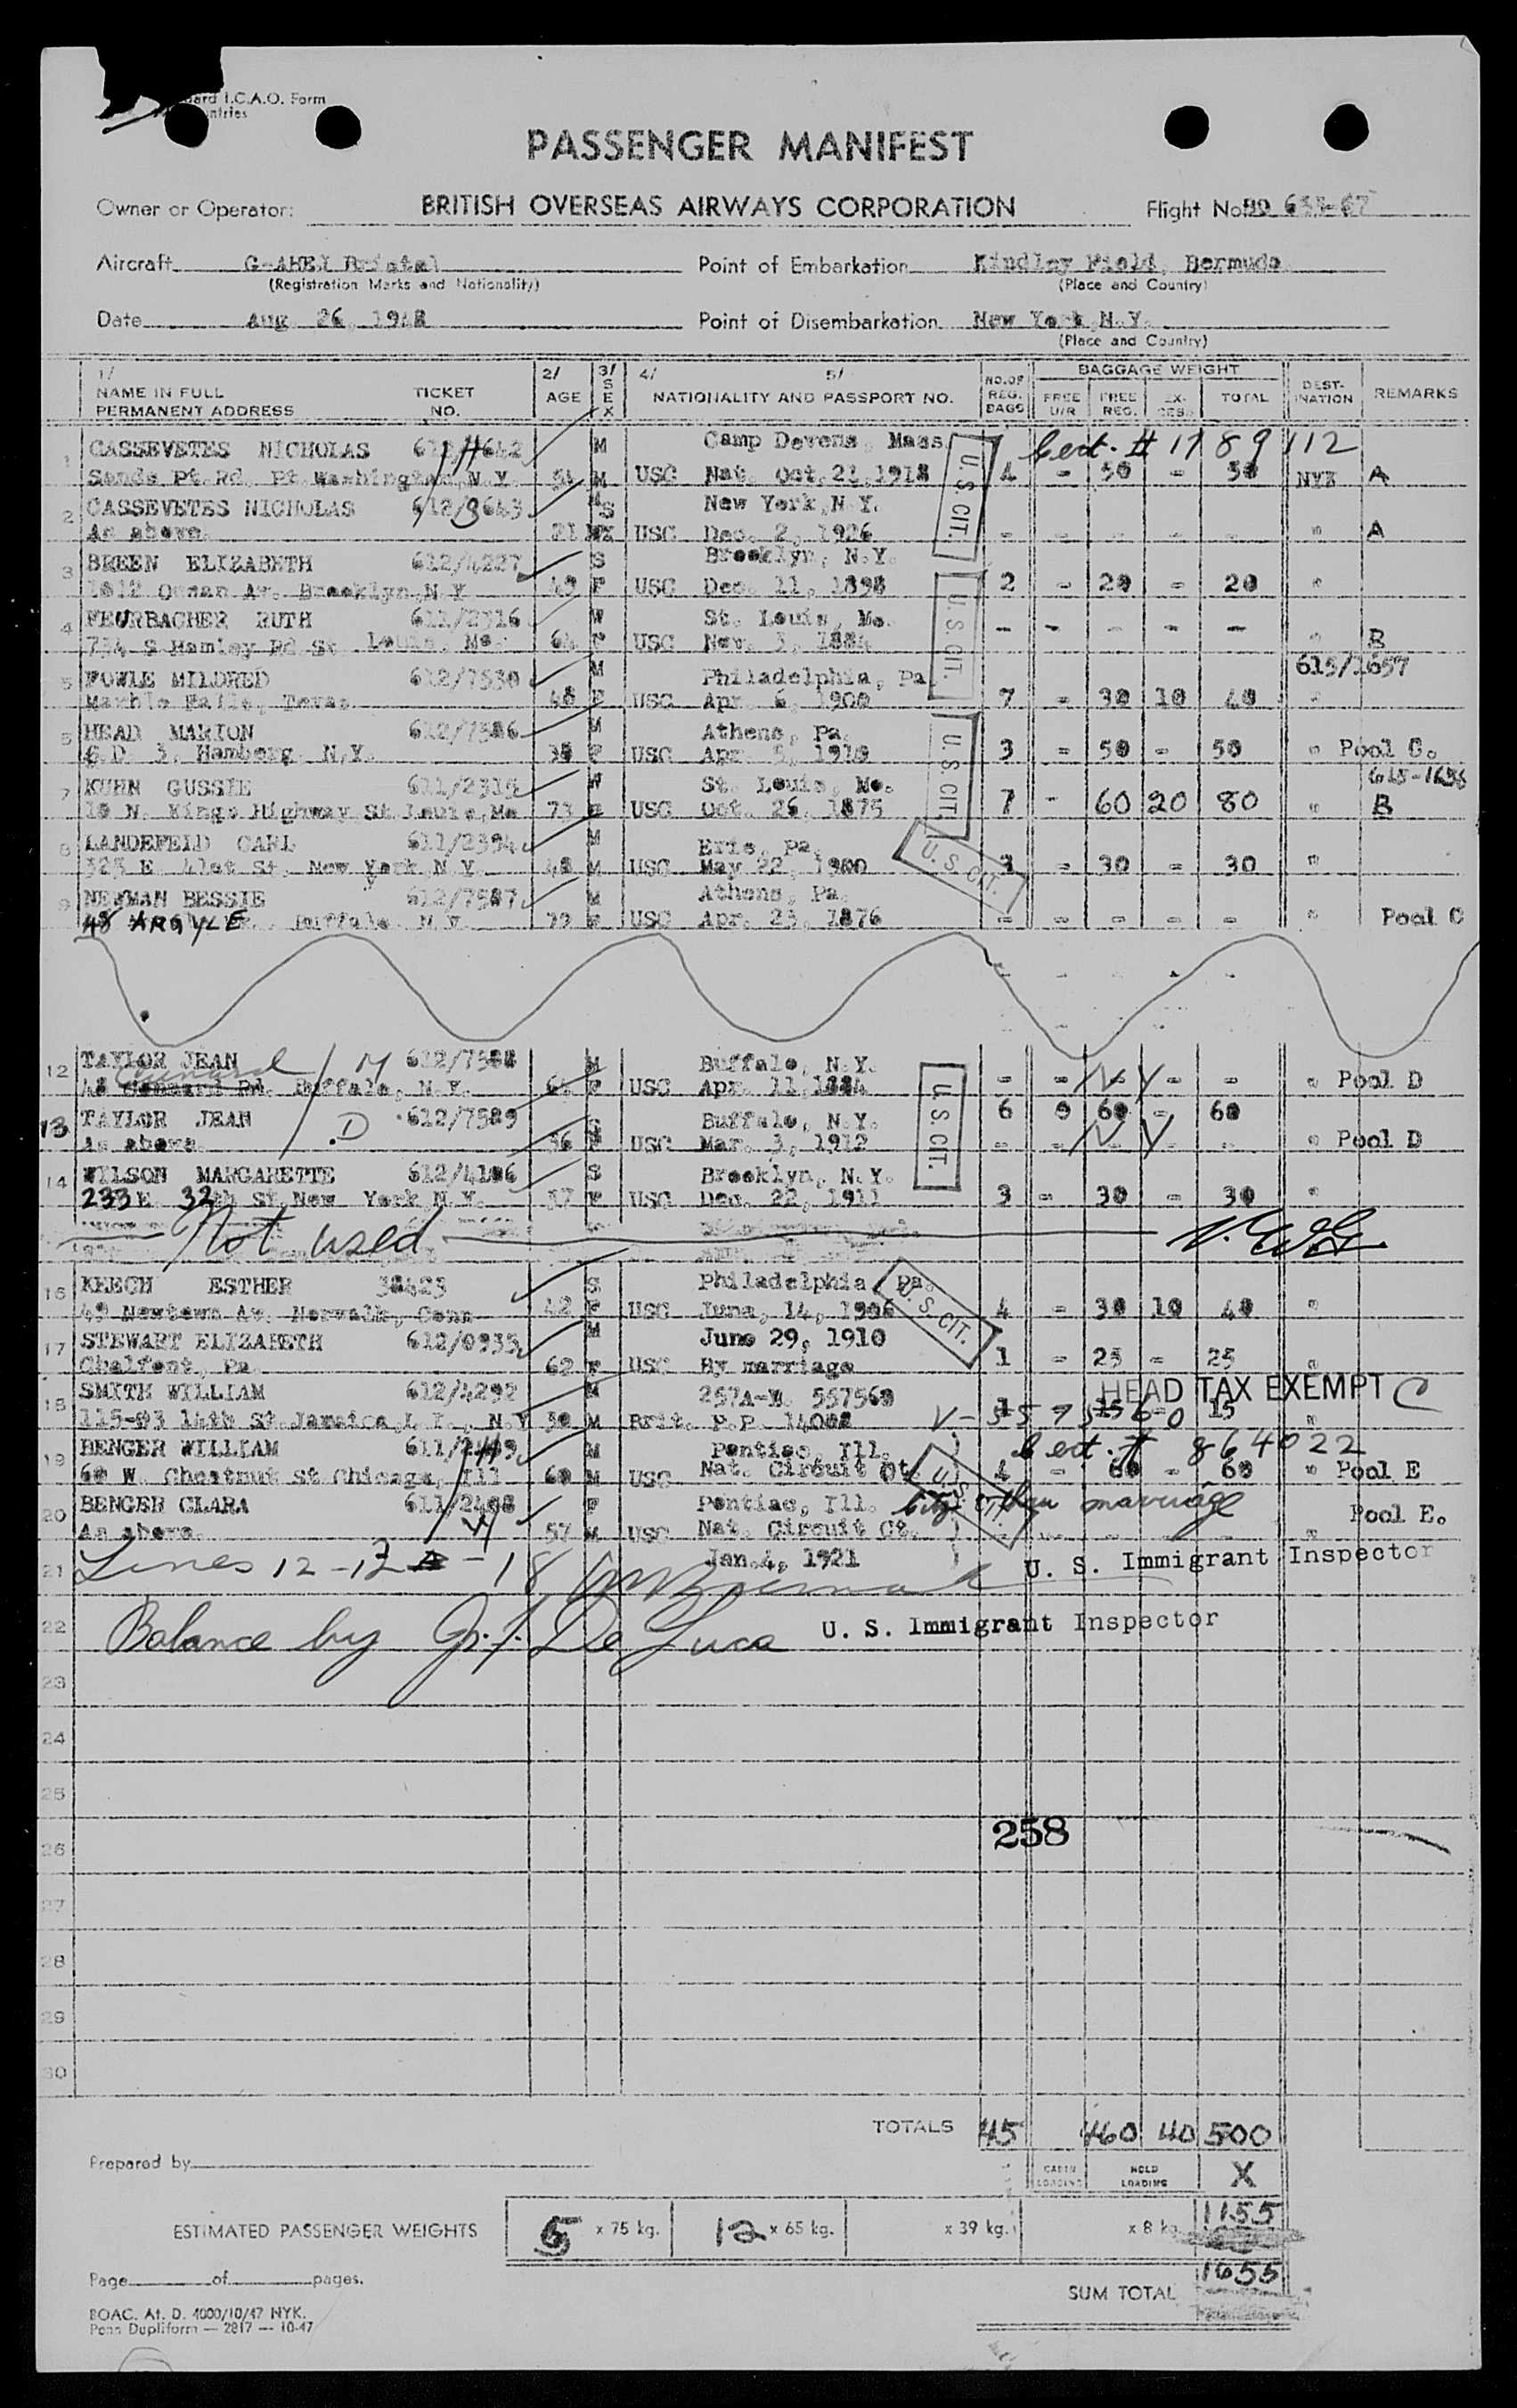 I.C.A.O. Form
PASSENGER MANIFEST
Owner or Operator: BRITISH OVERSEAS AIRWAYS CORPORATION Flight No.
Aircraft Point of Embarkation Kindley Field, Bermuda
(Registration Marks and Nationality) (Place and Country)
Date Aug. 26, 1948 Point of Disembarkation New York, N.Y.
(Place and Country)
1/ 2/ 3/ 4/ 5/ BAGGAGE WEIGHT
NAME IN FULL TICKET AGE SEX NATIONALITY AND PASSPORT NO. NO. OF REG. BAGS FREE U/R FREE REG. EX-CESS TOTAL DEST-INATION REMARKS
PERMANENT ADDRESS NO.
1 CASSEVETES NICHOLAS M Camp Devens, Mass. Cert. # 1789112
Sands Pt. Rd. Pt. Washington, N.Y. M USC Nat. Oct. 21, 1918 - 50 - 50 NYK A
2 CASSEVETES NICHOLAS S New York, N.Y.
As above. 21 USC Dec. 2, 1926 - - - - - " A
U.S. CIT.
3 BREEN ELIZABETH 612/4227 S Brooklyn, N.Y.
Brooklyn, N.Y. 49 F USC Dec. 11, 1898 2 - 20 - 20 "
4 FEURBACHER RUTH 611/2316 W St. Louis, Mo.
St. Louis, Mo. F USC Nov. 3, 1884 - - - - - " B
U.S. CIT.
5 FOWLE MILDRED 612/7530 M Philadelphia, Pa. 615/1657
Marble Falls, Texas 48 F USC Apr. 6, 1900 7 - 30 10 40 "
6 HEAD MARION 612/7586 M Athens, Pa.
Hamberg, N.Y. 38 F USC Apr. 5, 1910 3 - 50 - 50 " Pool C.
7 KUHN GUSSIE 611/2315 W St. Louis, Mo. 615-1656
10 N. Kings Highway St. Louis, Mo 73 F USC Oct. 26, 1875 7 - 60 20 80 " B
U.S. CIT.
8 LANDEFELD CARL 611/2394 M Erie, Pa.
323 E. 41st St. New York N.Y. 48 M USC May 22, 1900 - 30 - 30 "
U.S. CIT.
9 NEWMAN BESSIE 612/7587 M Athens, Pa.
48 ARGYLE Buffalo, N.Y. 72 F USC Apr. 23, 1876 - - - - - " Pool C
12 TAYLOR JEAN M 612/7588 M Buffalo, N.Y.
48 Buffalo, N.Y. 64 F USC Apr. 11, 1884 - - - - - " Pool D
13 TAYLOR JEAN D 612/7589 S Buffalo, N.Y. 6 0 60 - 60
As above. 36 F USC Mar. 3, 1912 - - - - - " Pool D
U.S. CIT.
14 WILSON MARGARETTE 612/4186 S Brooklyn, N.Y.
233 E. 32th St, New York N.Y. F USC Dec. 22, 1911 3 - 30 - 30 "
Not used
16 KEECH ESTHER 38423 S Philadelphia, Pa.
49 Newtown Av. Norwalk, Conn 42 F USC June, 14, 1906 4 - 30 10 40 "
U.S. CIT.
17 STEWART ELIZABETH 612/0935 M June 29, 1910
Chalfont, Pa. 62 F USC By marriage 1 - 25 - 25 "
18 SMITH WILLIAM 612/4292 M HEAD TAX EXEMPT C
115-93 14th St. Jamaica, L.I., N.Y. M Brit. P.P. V- 557560 15 "
19 BENGER WILLIAM M Pontiac, Ill. Cert. # 864022
60 W. Chestnut St Chicago, Ill 60 M USC Nat. Circuit Ct. 4 - 60 - 60 " Pool E
20 BENGER CLARA Pontiac, Ill. thru marriage Pool E.
As above. 57 USC Nat. Circuit Ct. "
U.S. CIT.
21 Lines 12-13 - 18 Jan. 4, 1921 U. S. Immigrant Inspector
22 Balance by De Luca U. S. Immigrant Inspector
23
24
25
258
26
27
28
29
30
TOTALS 45 460 40 500
Prepared by
CABIN LOADING HOLD LOADING X
ESTIMATED PASSENGER WEIGHTS 5 x 75 kg. 12 x 65 kg. x 39 kg. x 8 kg. 1155
1655
Page of pages. SUM TOTAL
BOAC. At. D. 4000/10/47 NYK.
Penn Dupliform — 2817 — 10-47